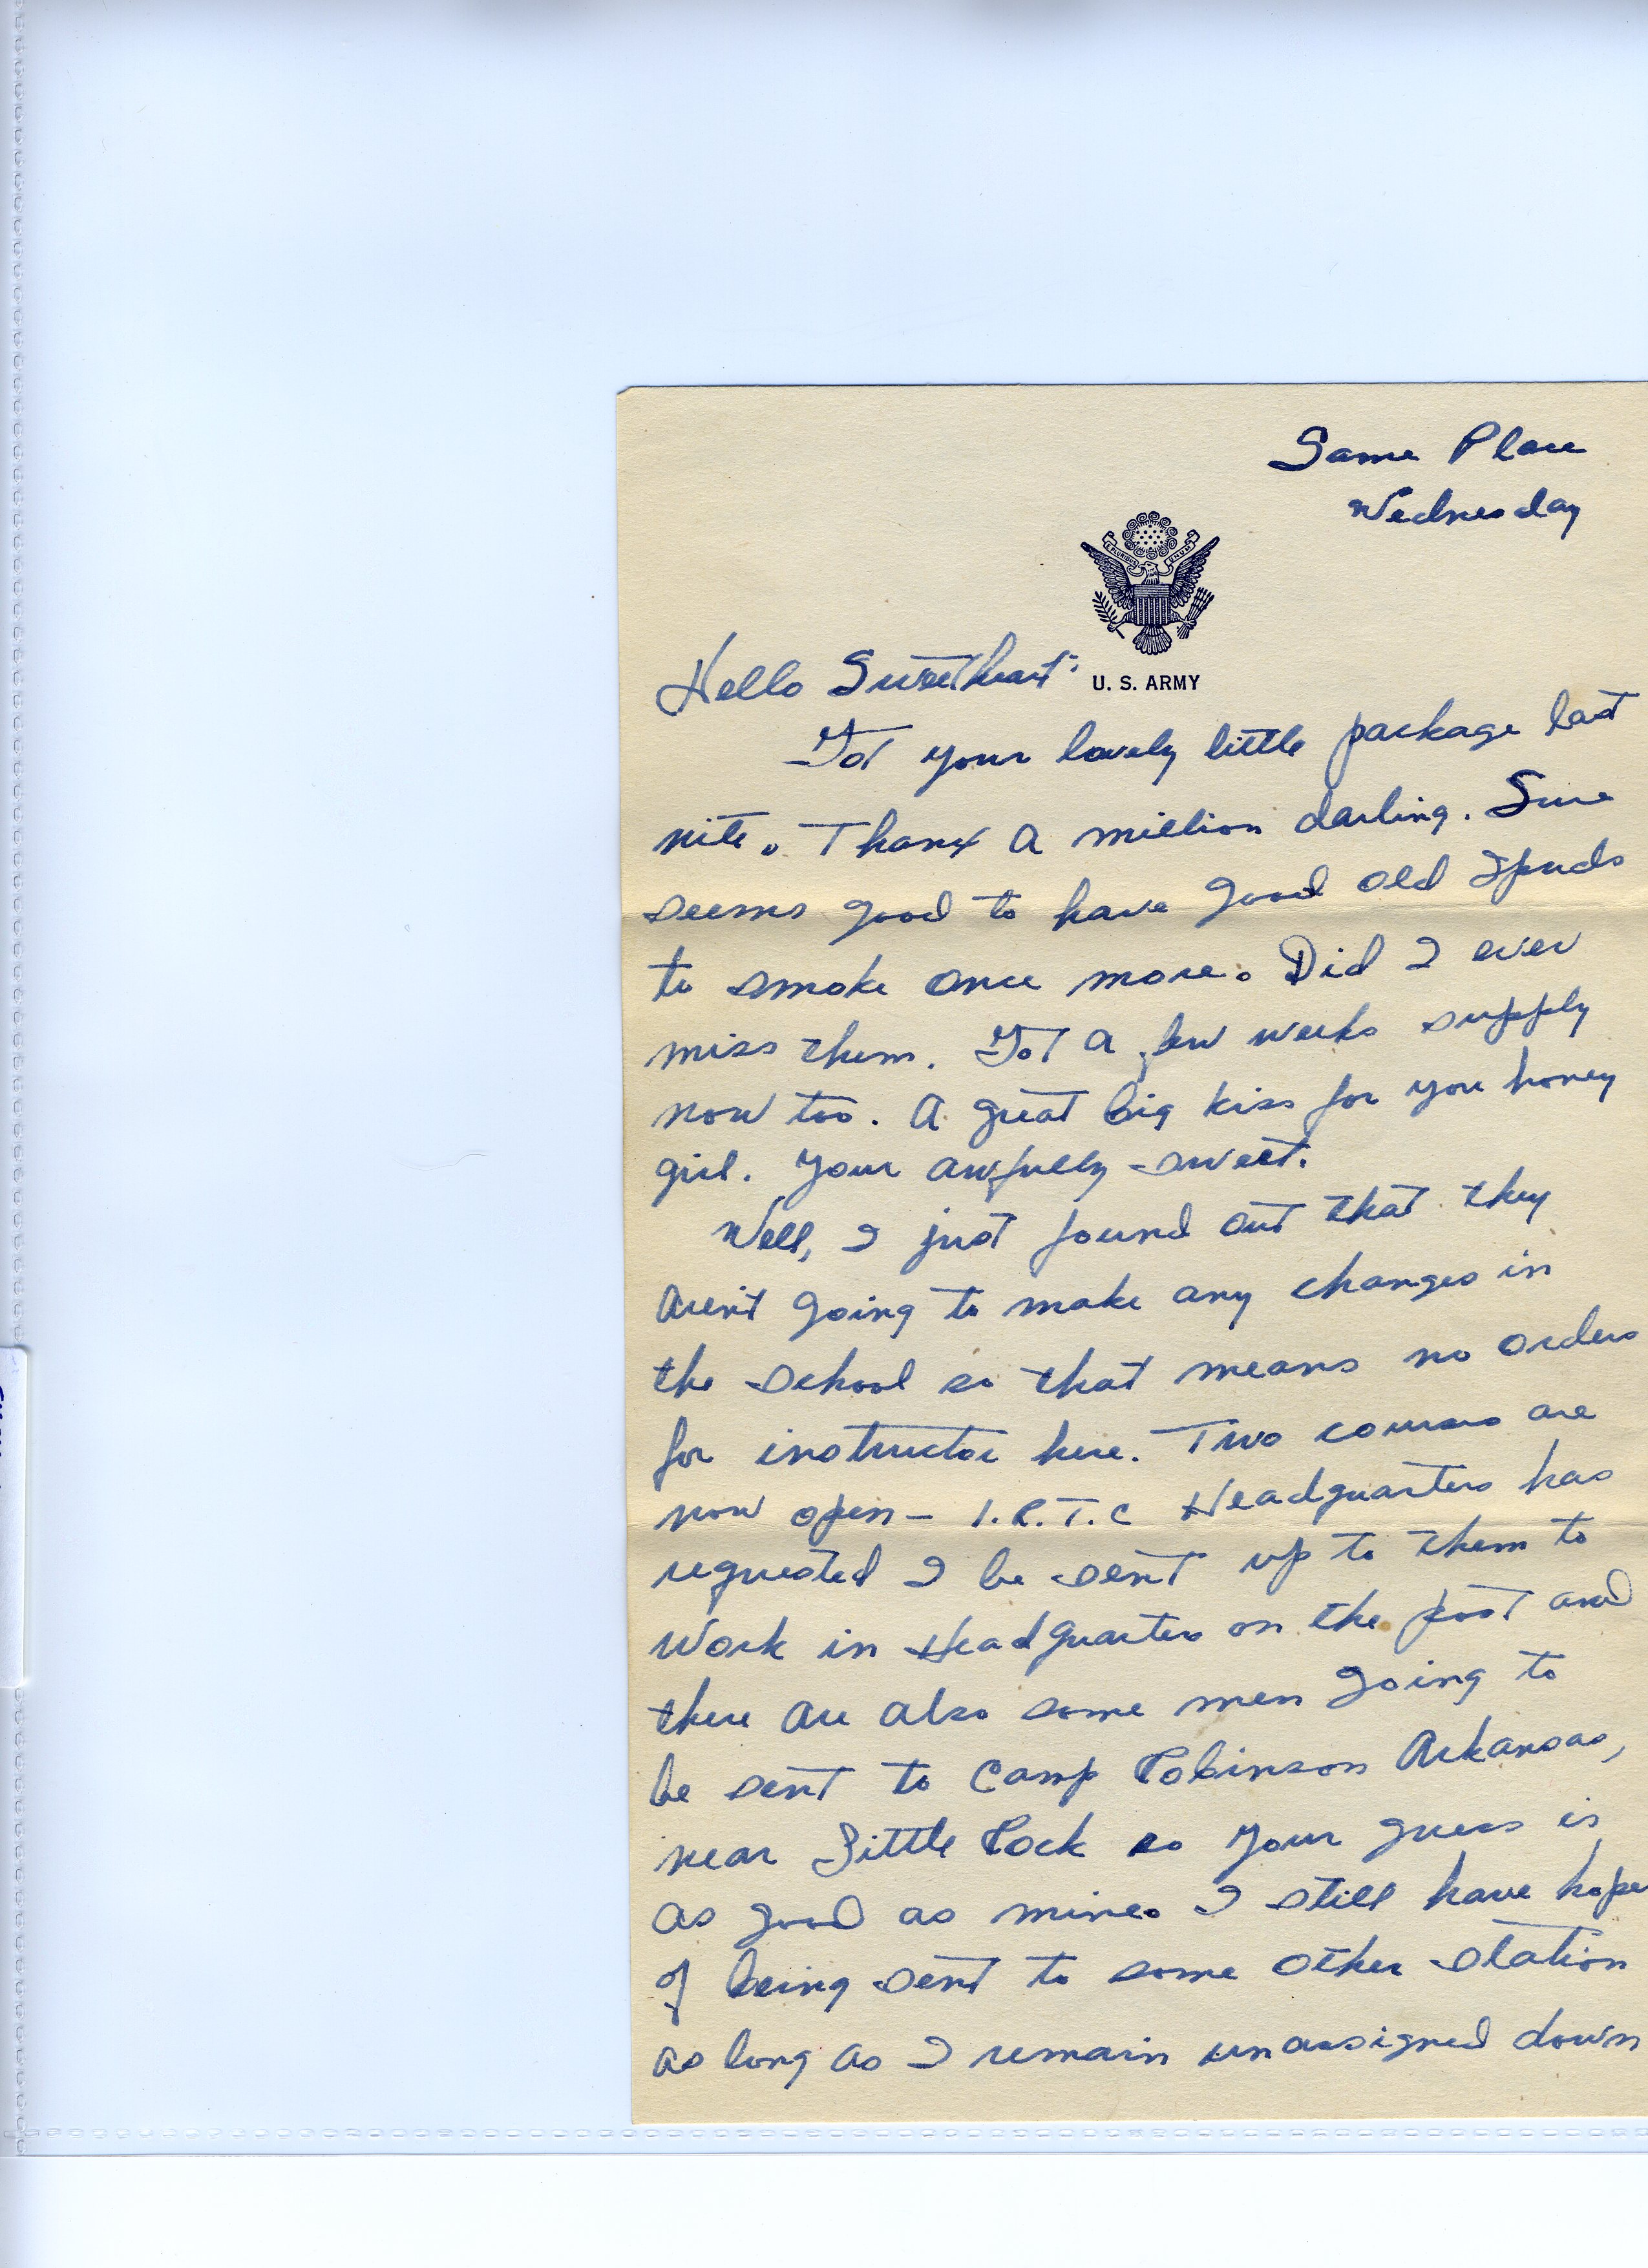 Same Place
Wednesday
E PLURIBUS UNUM
U. S. ARMY
Hello Sweetheart:
Got your lovely little package last
nite. Thanx a million darling. Sure
seems good to have good old Spuds
to smoke once more. Did I ever
miss them. Got a few weeks supply
now too. A great big kiss for you honey
girl. Your awfully sweet.
Well, I just found out that they
aren't going to make any changes in
the school so that means no orders
for instructor here. Two courses are
now open - I.R.T.C Headquarters has
requested I be sent up to them to
work in Headquarters on the post and
there are also some men going to
be sent to Camp Robinson Arkansas,
near Little Rock so your guess is
as good as mine. I still have hope
of being sent to some other station
as long as I remain unassigned down